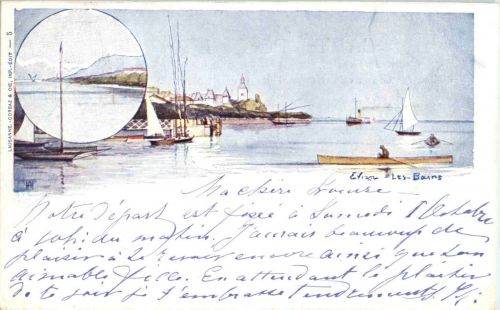 LAUSANNE.-CORBAZ & CIE, IMP.-EDIT — 5
Evian-Les-Bains
Ma chère
Notre départ est fixé à Samedi 1 Octobre
à 10h du matin. J'aurais beaucoup de
plaisir à te revoir encore ainsi que ton
aimable fille. En attendant le plaisir
de te voir je t'embrasse tendrement